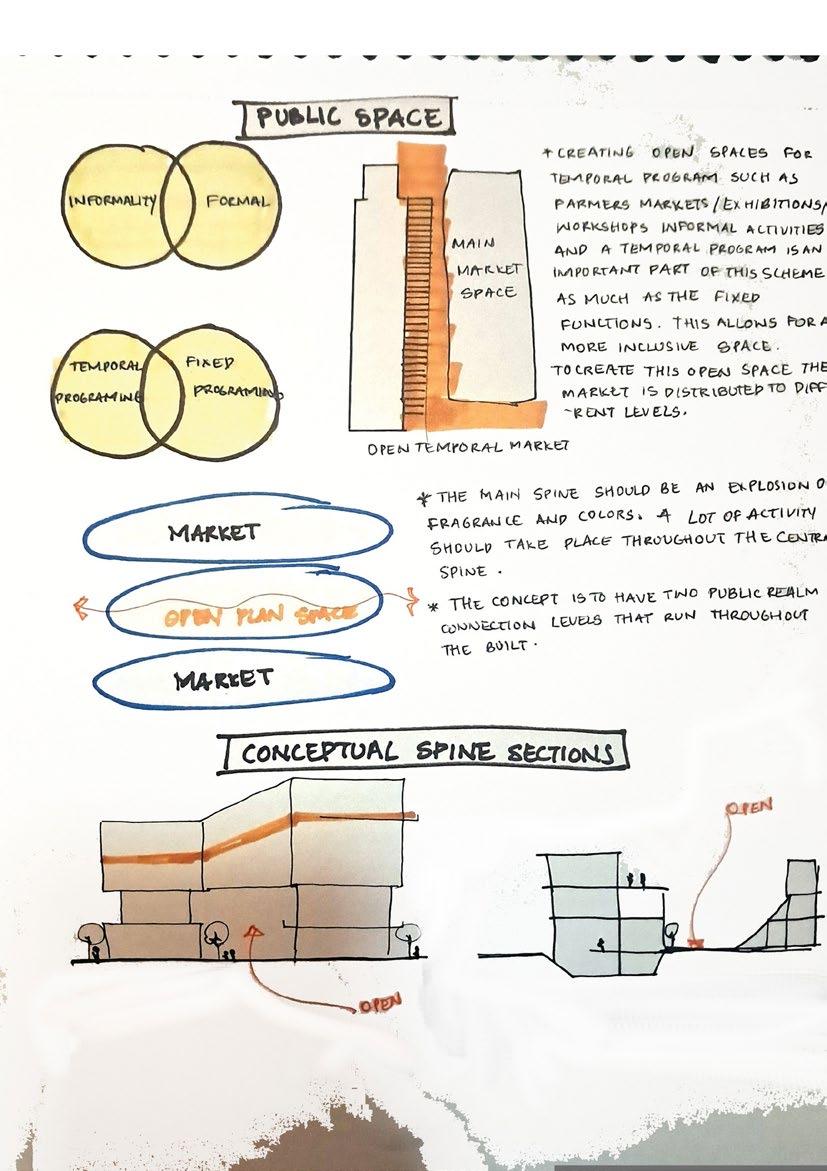 PUBLIC SPACE
INFORMALITY
FORMAL
TEMPORAL
PROGRAMING
FIXED
PROGRAMING
MAIN
MARKET
SPACE
OPEN TEMPORAL MARKET
* CREATING OPEN SPACES FOR
TEMPORAL PROGRAM SUCH AS
FARMERS MARKETS / EXHIBITIONS/
WORKSHOPS INFORMAL ACTIVITIES
AND A TEMPORAL PROGRAM IS AN
IMPORTANT PART OF THIS SCHEME
AS MUCH AS THE FIXED
FUNCTIONS. THIS ALLOWS FOR A
MORE INCLUSIVE SPACE.
TO CREATE THIS OPEN SPACE THE
MARKET IS DISTRIBUTED TO DIFF
-RENT LEVELS.
MARKET
OPEN PLAN SPACE
MARKET
* THE MAIN SPINE SHOULD BE AN EXPLOSION O
FRAGRANCE AND COLORS. A LOT OF ACTIVITY
SHOULD TAKE PLACE THROUGHOUT THE CENTRA
SPINE.
* THE CONCEPT IS TO HAVE TWO PUBLIC REALM
CONNECTION LEVELS THAT RUN THROUGHOUT
THE BUILT.
CONCEPTUAL SPINE SECTIONS
OPEN
OPEN